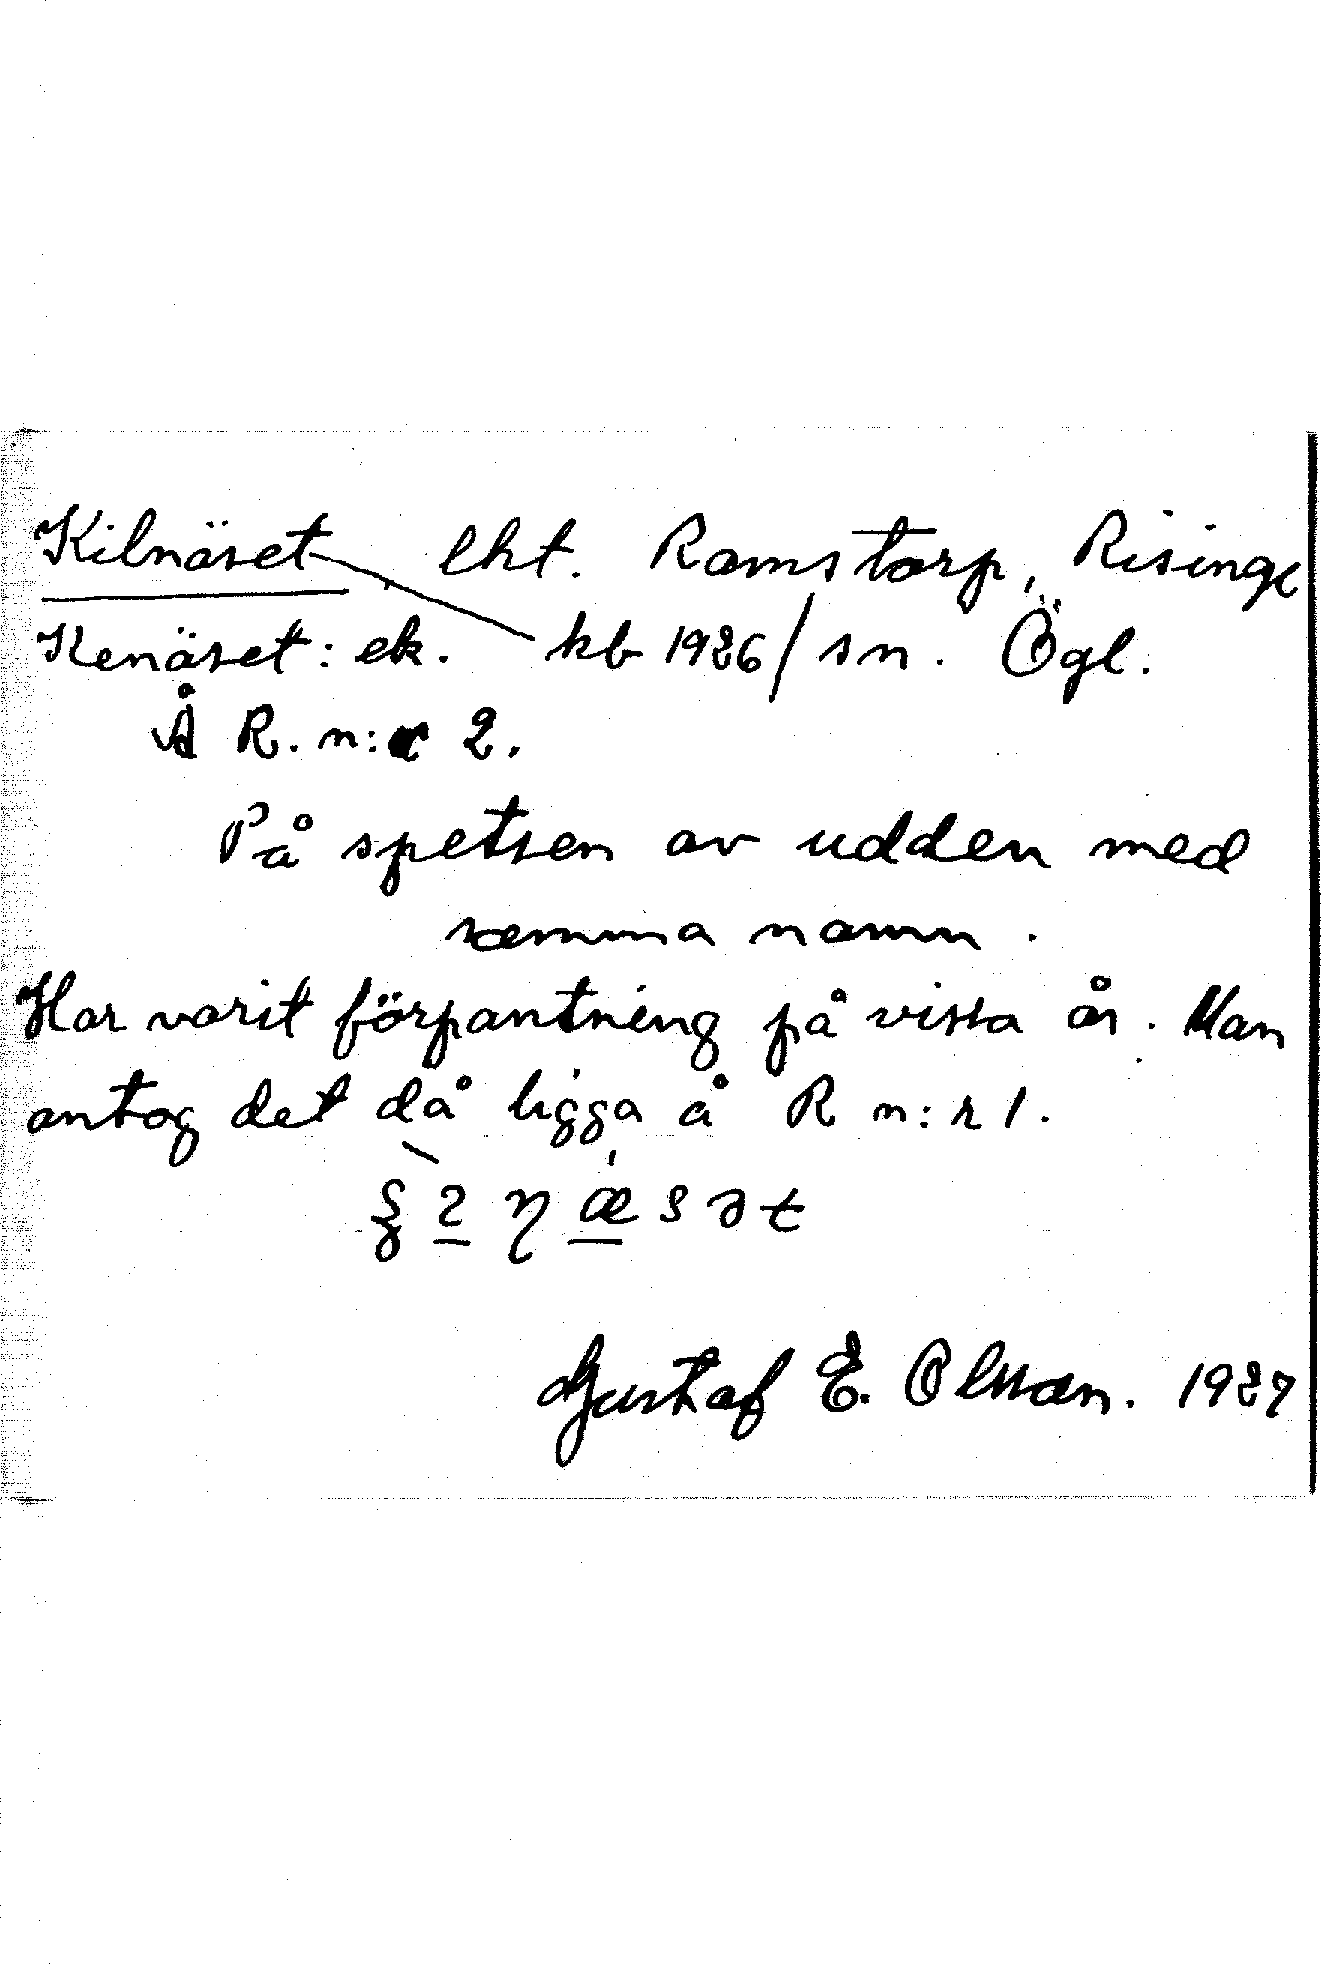 Kilnäset lht. Ramstorp, Risinge
Kenäset: ek. kb 1926/ sn. Ögl.
Å R. n:r 2.
På spetsen av udden med
samma namn.
Har varit förpantning på vissa år. Man
antog det då ligga å R n:r 1.
Gustaf E. Olsson. 1927